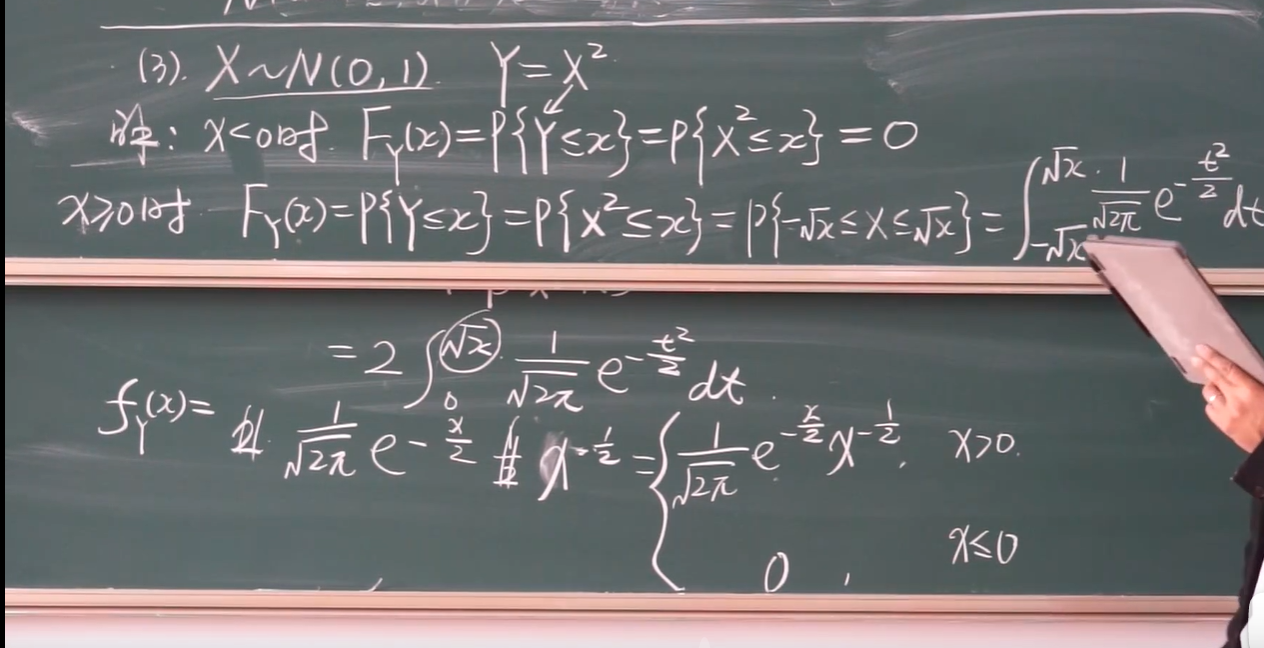 (3). X~N(0,1). Y=X²
解: x<0时. F_Y(x)=P{Y≤x}=P{X²≤x}=0
x≥0时. F_Y(x)=P{Y≤x}=P{X²≤x}=P{-√x≤X≤√x}=∫_{-√x}^{√x} 1/√2π e^{-t²/2} dt
=2∫_0^{√x} 1/√2π e^{-t²/2} dt.
f_Y(x)= 2 · 1/√2π e^{-x/2} 1/2 x^{-1/2} = { 1/√2π e^{-x/2} x^{-1/2}, x>0.
0, x≤0